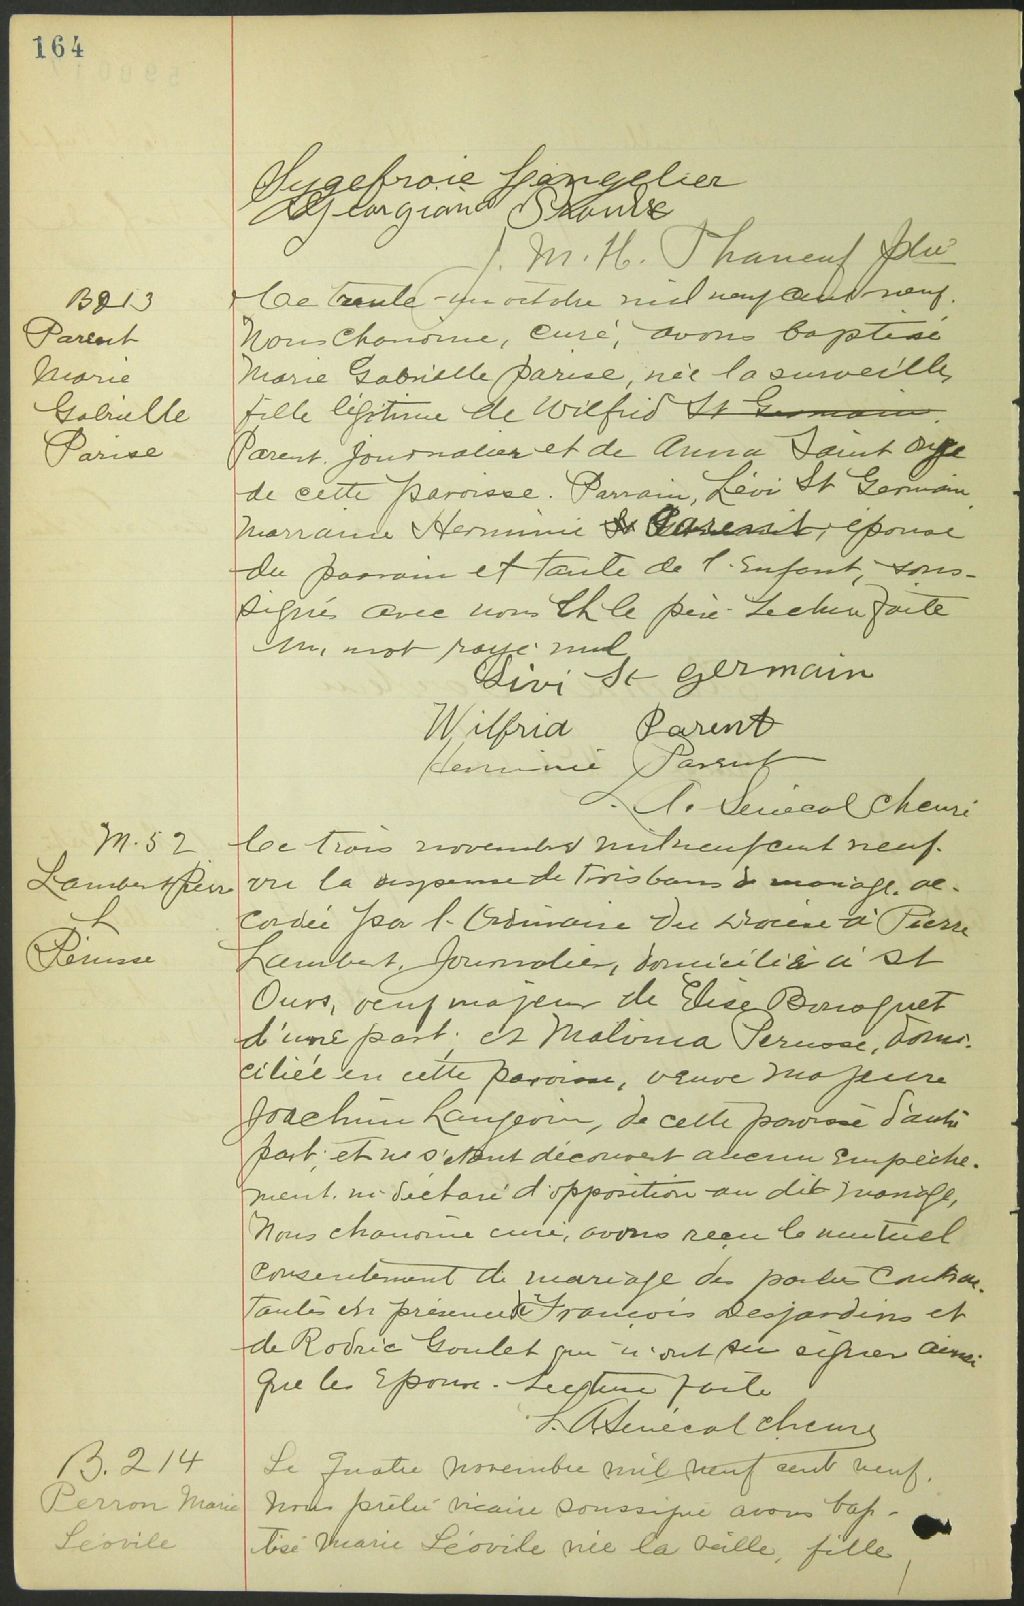 164
Sygefroie Langelier
Georgiana Proulx
J. M. H. Phaneuf ptre
B 213
Parent
Marie
Gabrielle
Parise
Ce trente-un octobre mil neuf cent neuf.
Nous chanoine, curé, avons baptisé
Marie Gabrielle Parise, née la surveille,
fille légitime de Wilfrid St Germain
Parent. journalier et de Anna Saint Onge
de cette paroisse. Parrain, Lévi St Germain
marraine Herminie Parent, épouse
du parrain et tante de l'enfant, sous-
signés avec nous et le père. Lecture faite
un mot rayé nul
Livi St germain
Wilfrid Parent
Herminie Parent
L. A. Sénécal ch curé
M. 52
Lambert Pierre
&
Perusse
Ce trois novembre mil neuf cent neuf.
vu la dispense de trois bans de mariage, ac-
cordée par l'Ordinaire du diocèse à Pierre
Lambert, journalier, domicilié à St
Ours, veuf majeur de Elise Bousquet
d'une part; et Malvina Perusse, domi-
ciliée en cette paroisse, veuve majeure
Joachim Langevin, de cette paroisse d'autre
part; et ne s'étant découvert aucun empêche-
ment. ni déclaré d'opposition au dit mariage,
Nous chanoine curé, avons reçu le mutuel
consentement de mariage des parties contrac-
tantes en présence de François Desjardins et
de Rodric Goulet qui n'ont su signer ainsi
que les Epoux. Lecture faite
L. A Sénécal ch curé
B. 214
Perron Marie
Léovile
Le quatre novembre mil neuf cent neuf.
Nous prêtre vicaire soussigné avons bap-
tisé Marie Léovile née la veille, fille